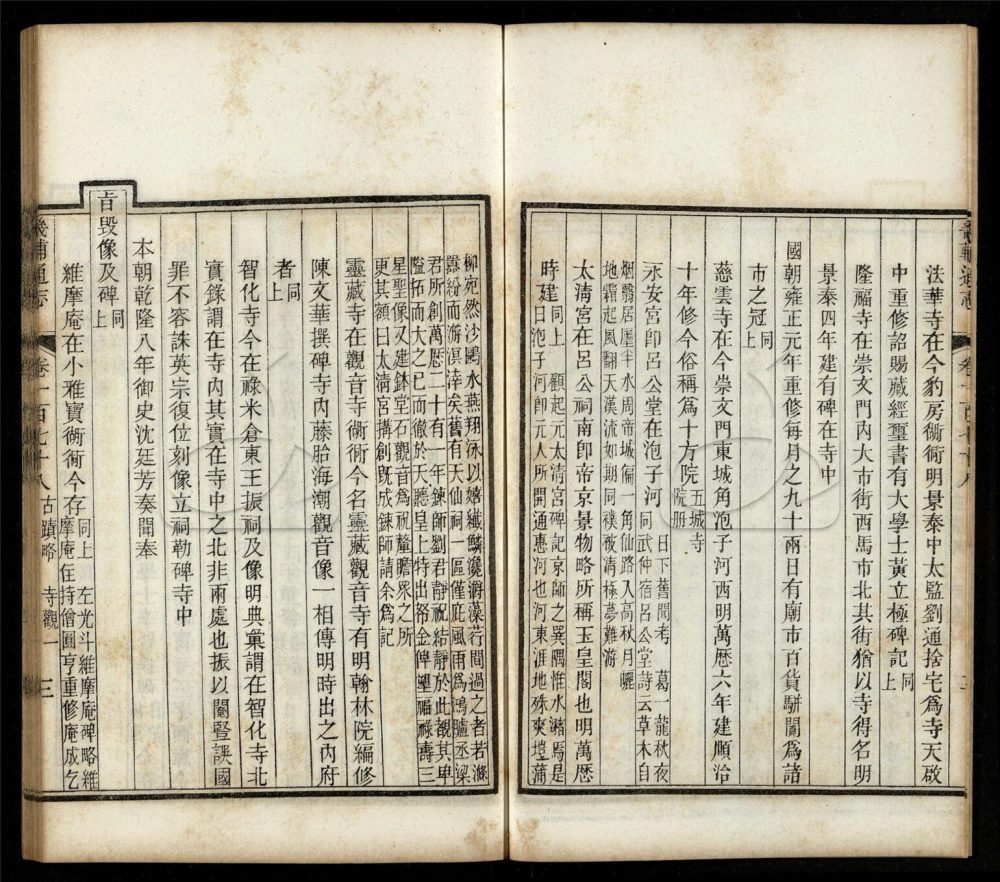 畿輔通志 卷一百七十八
法華寺在今豹房衚衕明景泰中太監劉通捨宅爲寺天啟
中重修詔賜藏經璽書有大學士黃立極碑記同上
隆福寺在崇文門內大市街西馬市市北其街猶以寺得名明
景泰四年建有碑在寺中
國朝雍正元年重修每月之九十兩日有廟市百貨駢闐爲諸
市之冠同上
慈雲寺在今崇文門東城角泡子河西明萬歷六年建順治
十年修今俗稱爲十方院五城寺院册
永安宮即呂公堂在泡子河日下舊聞考 葛一龍秋夜同武仲宿呂公堂詩云草木自
烟翳居廛半水周帝城偏一角仙路入高秋月曬
地霜起風翻天漢流如期同襆被淸極夢難游
太淸宮在呂公祠南卽帝京景物略所稱玉皇閣也明萬歷
時建同上 顧起元太淸宮碑記京師之巽隅惟水瀦焉是曰泡子河卽元人所開通惠河也河東涯地殊爽塏蒲
柳宛然沙鷗水燕翔泳以嬉纖鱗瀺灂藻荇間過之者若滌
囂紛而游溟涬矣舊有天仙祠一區僅庇風雨爲鴻臚丞梁
君所創萬歷二十有一年錬師劉君靜祝結靜於此覩其卑
隘拓而大之已而徹於天聽皇上特出帑金俾塑福祿壽三
星聖像又建鉢堂石觀音爲祝釐瞻禮之所
更其額曰太淸宮搆創旣成錬師請余爲記
靈藏寺在觀音寺衚衕今名靈藏觀音寺有明翰林院編修
陳文華撰碑寺內藤胎海潮觀音像一相傳明時出之內府
者同上
智化寺今在祿米倉東王振祠及像明典彙謂在智化寺北
實錄謂在寺內其實在寺中之北非兩處也振以閹豎誤國
罪不容誅英宗復位刻像立祠勒碑寺中
本朝乾隆八年御史沈廷芳奏聞奉
旨毀像及碑同上
維摩庵在小雅寶衚衕今存同上 左光斗維摩庵碑略維摩庵住持僧圓亨重修庵成乞
畿輔通志 卷一百七十八 古蹟略 寺觀一 三